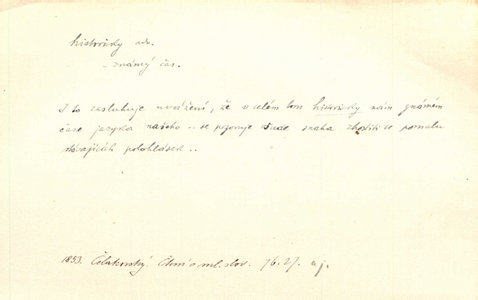 historicky adv.
- známý čas.
I to zasluhuje uvážení, že v celém tom historicky nám známém
čase jazyka našeho .. se pozoruje všude snaha zhostiti se pomalu
zbývajících polohlásek ..
1853. Čelakovský. Čtení o ml. slov. 76. 27. a j.